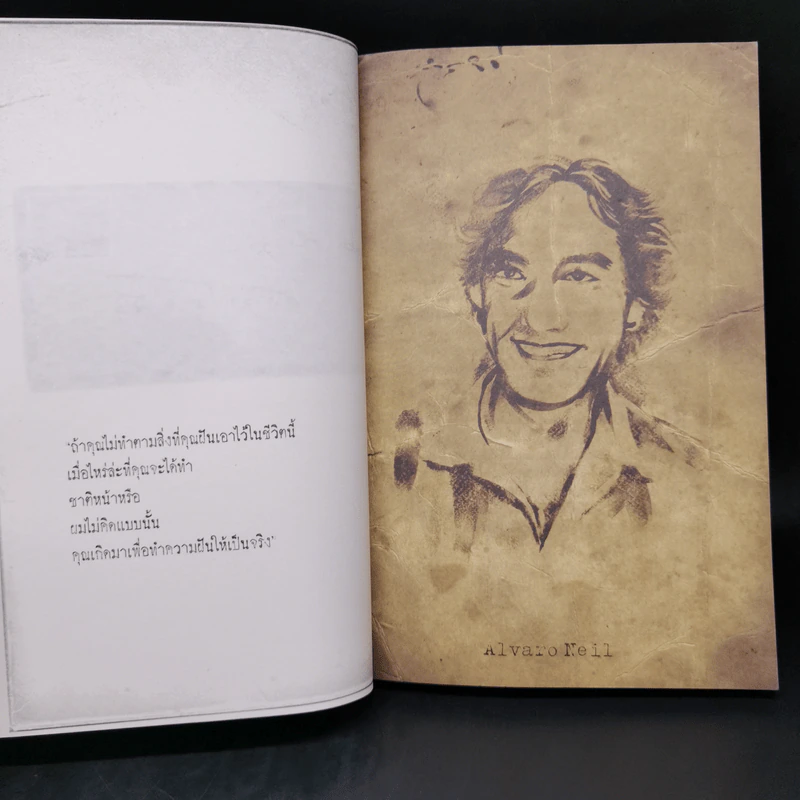 "ถ้าคุณไม่ทำตามสิ่งที่คุณฝันเอาไว้ในชีวิตนี้
เมื่อไหร่ล่ะที่คุณจะได้ทำ
ชาติหน้าหรือ
ผมไม่คิดแบบนั้น
คุณเกิดมาเพื่อทำความฝันให้เป็นจริง"
Alvaro Neil